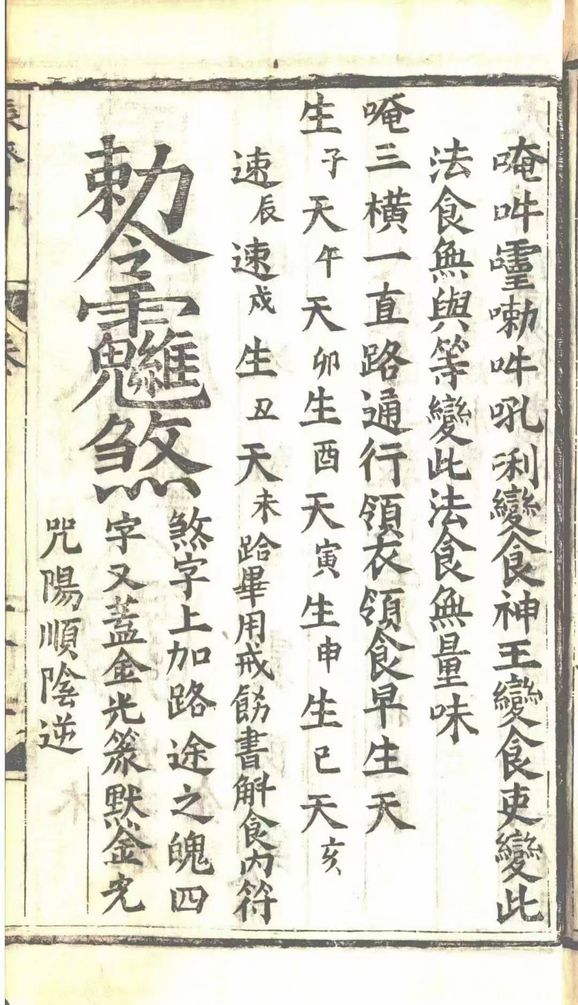 唵吽𩆜嘞吽吼唎變食神王變食吏變此
法食無與等變此法食無量味
唵三橫一直路通行領衣領食早生天
生子天午天卯生酉天寅生申生巳天亥
速辰速戌生丑天未跲畢用戒飭書斛食內符
勅令煞
煞字上加路途之魄四
字又蓋金光篆默金光
咒陽順陰逆